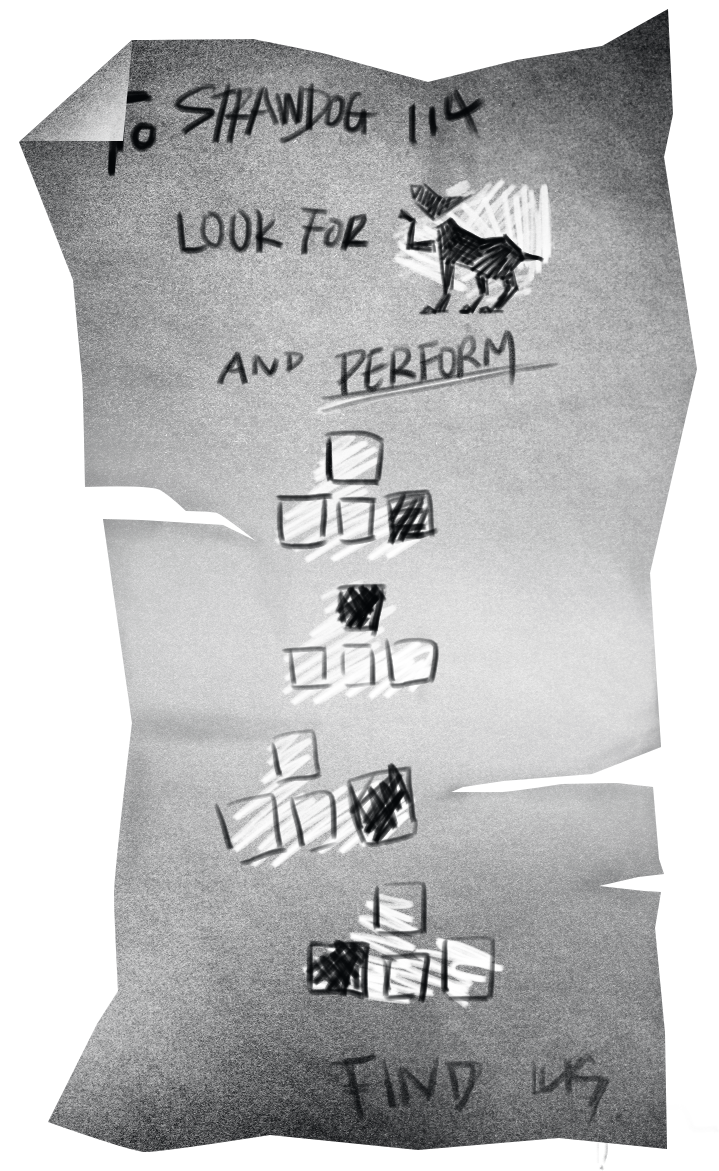 To STRAWDOG 114
LOOK FOR
AND PERFORM
FIND US